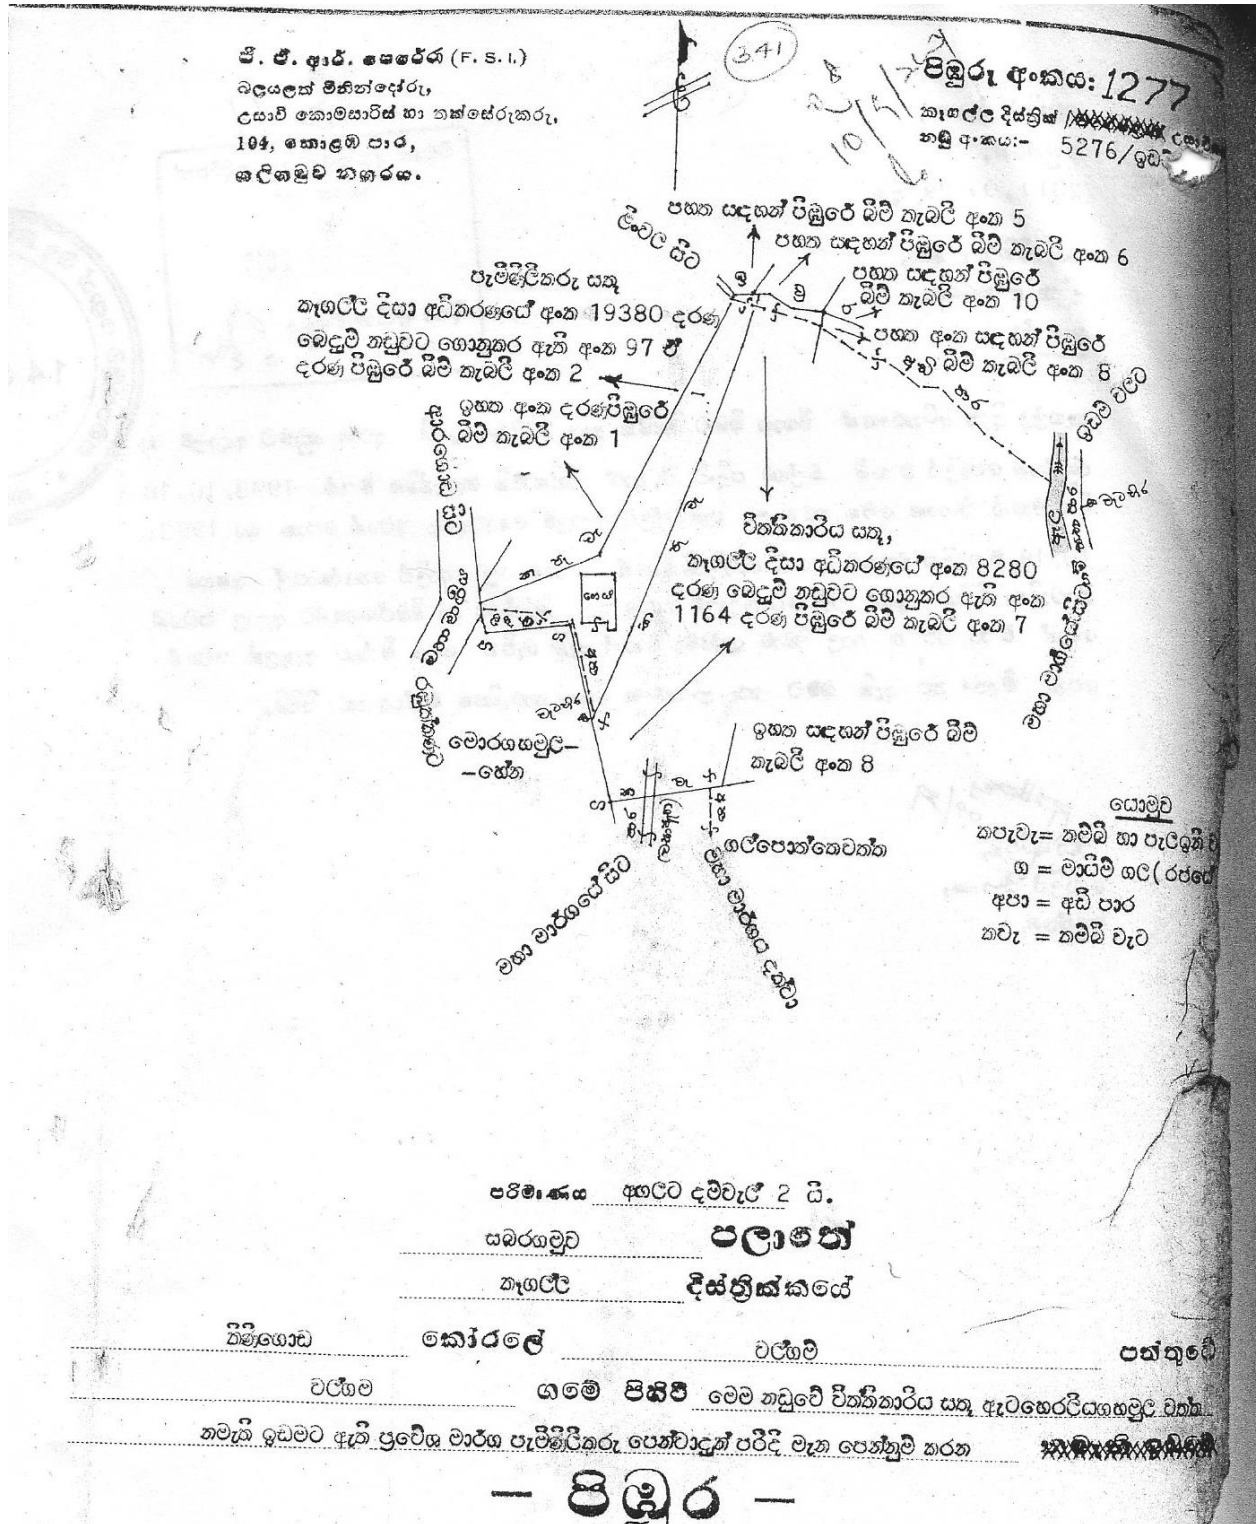 341
ජී. ඒ. ආර්. පෙරේරා (F. S. I.)
බලයලත් මිනින්දෝරු,
උසාවි කොමසාරිස් හා තක්සේරුකරු,
104, කොළඹ පාර,
ගලිගමුව නගරය.
පිඹුරු අංකය: 1277
කෑගල්ල දිස්ත්‍රික්
නඩු අංකය:- 5276/ඉඩ
පහත සඳහන් පිඹුරේ බිම් කැබලි අංක 5
පහත සඳහන් පිඹුරේ බිම් කැබලි අංක 6
පහත සඳහන් පිඹුරේ
බිම් කැබලි අංක 10
පහත අංක සඳහන් පිඹුරේ
බිම් කැබලි අංක 8
පැමිණිලිකරු සතු
කෑගල්ල දිසා අධිකරණයේ අංක 19380 දරණ
බෙදුම් නඩුවට ගොනුකර ඇති අංක 97 ඒ
දරණ පිඹුරේ බිම් කැබලි අංක 2
ඉහත අංක දරණ පිඹුරේ
බිම් කැබලි අංක 1
ඉඩම් වලට
විත්තිකාරිය සතු,
කෑගල්ල දිසා අධිකරණයේ අංක 8280
දරණ බෙදුම් නඩුවට ගොනුකර ඇති අංක
1164 දරණ පිඹුරේ බිම් කැබලි අංක 7
ගෙය
මහා මාර්ගයේ සිට
මොරගහමුල-
-හේන
ඉහත සඳහන් පිඹුරේ බිම්
කැබලි අංක 8
ගල්පොත්තෙවත්ත
මහා මාර්ගයේ සිට
මහා මාර්ගය දක්වා
යොමුව
කපැවැ = කම්බි හා පැලඉනි ව
ග = මායිම් ගල (රජයේ
අපා = අඩි පාර
කවැ = කම්බි වැට
පරිමාණය අඟලට දම්වැල් 2 යි.
සබරගමුව පලාතේ
කෑගල්ල දිස්ත්‍රික්කයේ
කිණිගොඩ කෝරලේ වල්ගම් පත්තුවේ
වල්ගම ගමේ පිහිටි මෙම නඩුවේ විත්තිකාරිය සතු ඇටහෙරලියගහමුල වත්ත
නමැති ඉඩමට ඇති ප්‍රවේශ මාර්ග පැමිණිලිකරු පෙන්වාදුන් පරිදි මැන පෙන්නුම් කරන
— පිඹුර —